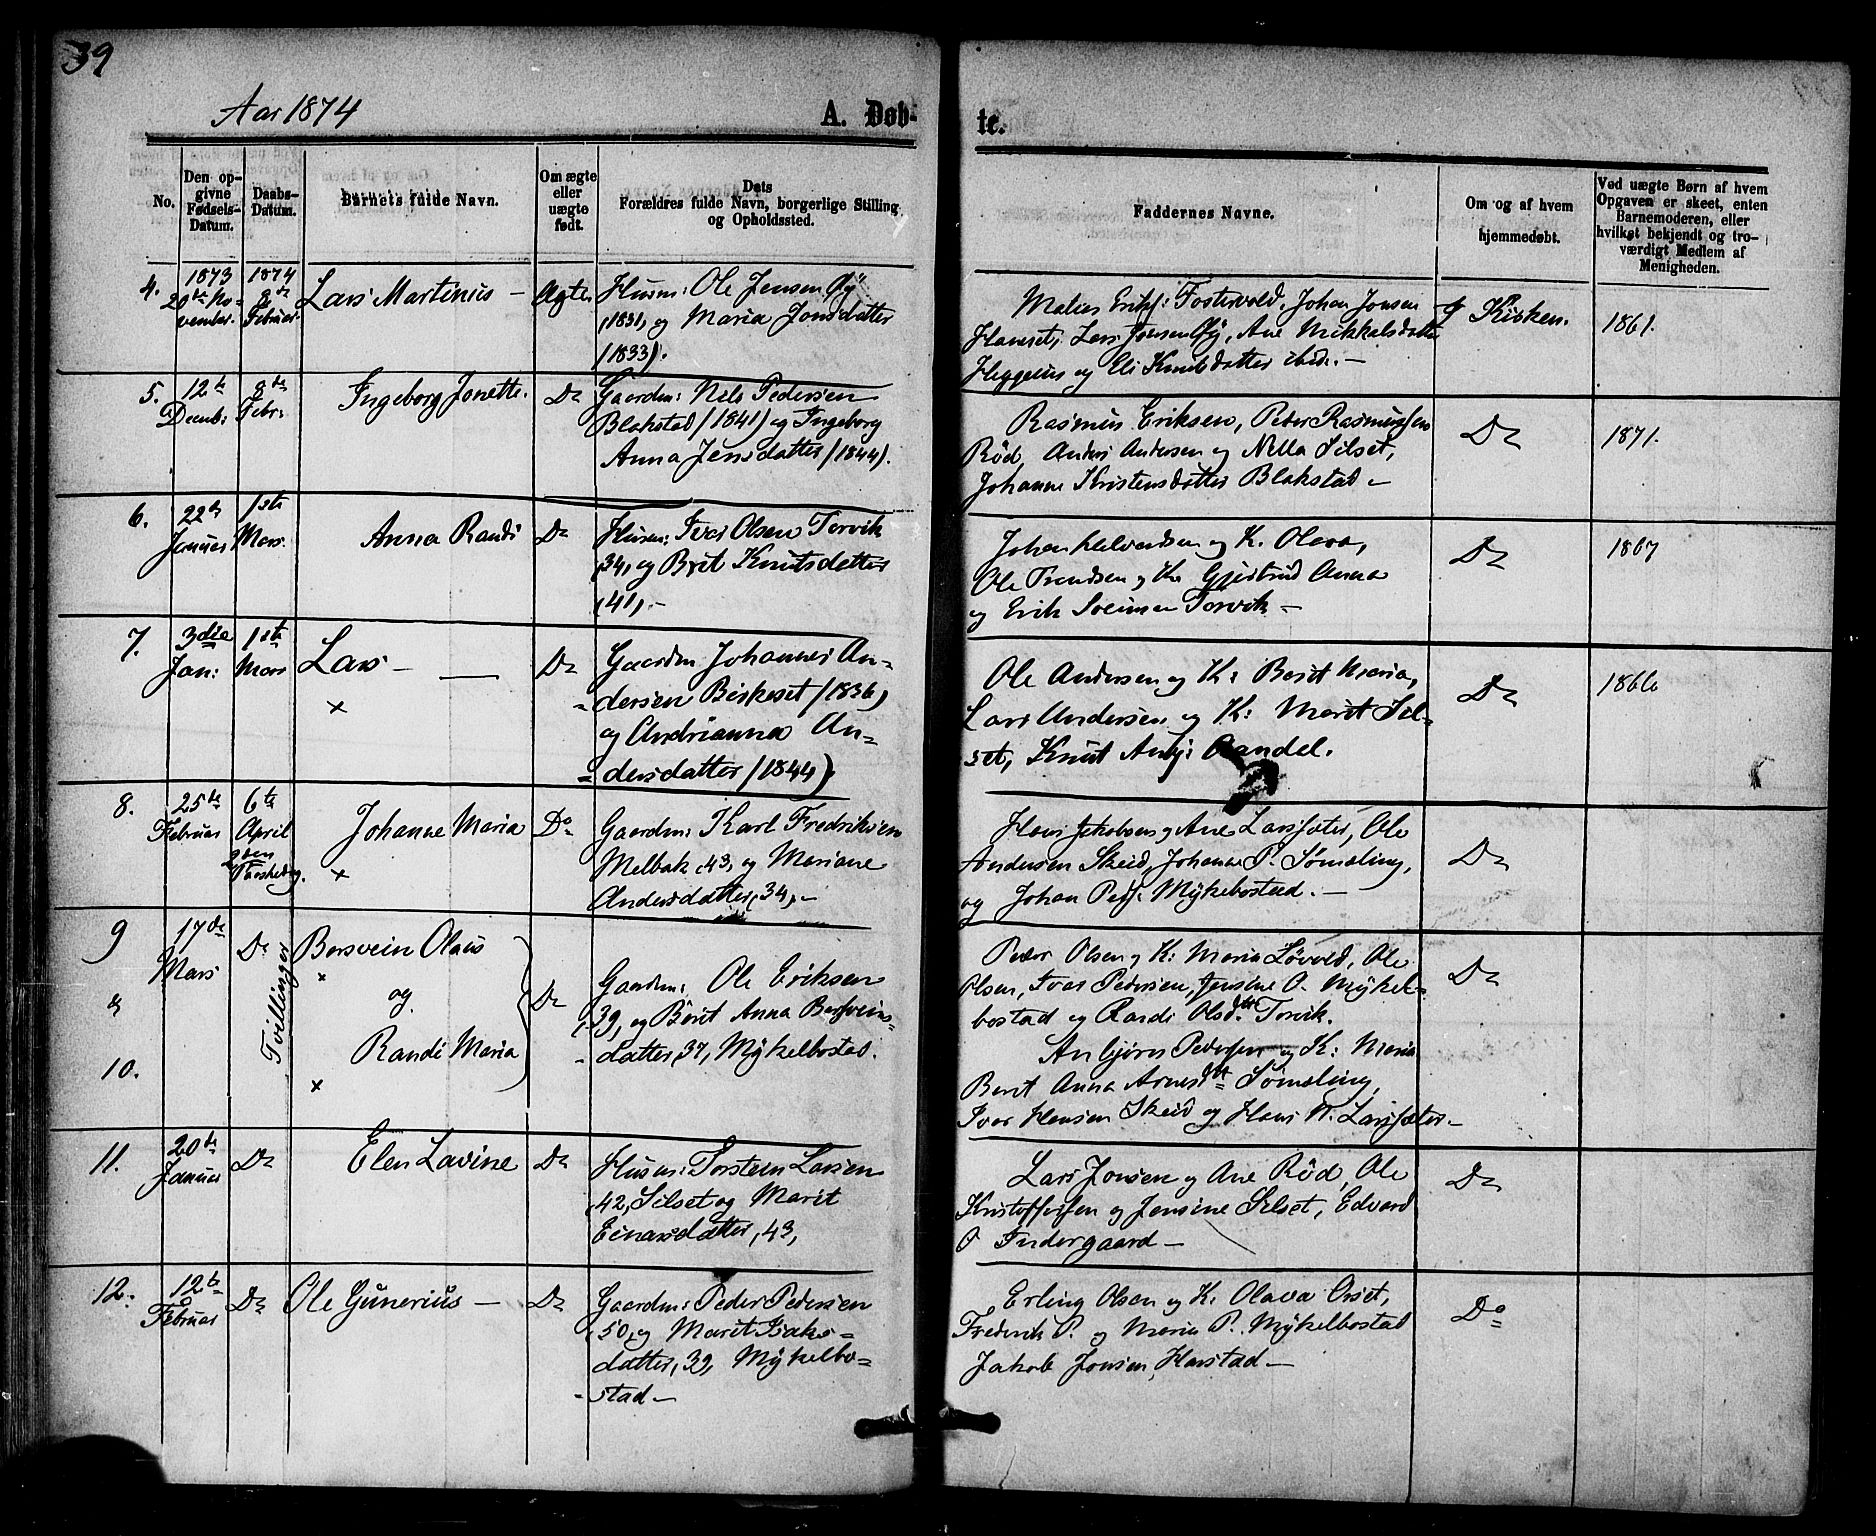 39
Aar 1874
A. Døb-
te.
No.
Den op-
givne
Fødsels-
Datum.
Daabs-
Datum.
Barnets fulde Navn.
Om ægte
eller
uægte
født.
Dats
Forældres fulde Navn, borgerlige Stilling
og Opholdssted.
Faddernes Navne.
Om og af hvem
hjemmedøbt.
Ved uægte Børn af hvem
Opgaven er skeet, enten
Barnemoderen, eller
hvilket bekjendt og tro-
værdigt Medlem af
Menigheden.
4.
1873
20de No-
vember.
1874
8de
Februar.
Lars Martinius -
Ægte
Husm: Ole Jensen Øy
(1831) og Maria Jonsdatter
(1833).
Fostervold, Johan Jonsen
Lars Jonsen Øy, Ane Mikkalsdatter
og Eli Knudsdatter ibid. -
Kirken.
1861.
5.
12te
Decembr
8de
Febr:
Ingeborg Jonette.
Do
Gaardm: Nels Pedersen
Blakstad (1841) og Ingeborg
Anna Jensdatter (1844).
Rasmus Eriksen, Peder Rasmussen
Rød, Anders Andersen og Nella Silset,
Johanne Kristensdatter Blakstad -
Do
1871.
6.
22de
Januar
1ste
Mars.
Anna Randi
Do
Husm: Ivar Olsen Torvik
(34) og Brit Knutsdatter
(41). -
Johan Halvordsen og K. Olava,
Ole Trondsen og K. Gjertrud Anna
og Erik Torvik -
Do
1867
7.
3die
Jan:
1ste
Mars
Lars -
x
Do
Gaardm Johannes An-
dersen Birkeset (1836)
og Andrianna An-
dersdatter (1844).
Ole Andersen og K: Berit Maria,
Lars Andersen og K: Marit Sil-
set, Knut Anbj: Aandal.
Do
1866
8.
25de
Februar
6te
April
2den
Paaskedag.
Johanne Maria
x
Do
Gaardm: Karl Fredriksen
Melbak (43) og Mariane
Andersdatter (34). -
Hans Jakobsen og Ane Larssæter, Ole
Andersen Skeid, Johanne P. Sømeling,
og Johan Peds: Mykelbostad. -
Do
9
17de
Mars
Do
Bersvein Olaus
x
og
og
Tvillinger
10.
Randi Maria
x
Do
Gaardm: Ole Eriksen
(39) og Berit Anna Bersveins-
datter (37) Mykelbostad.
Peder Olsen og K: Maria Løvold, Ole
Olsen, Ivar Pedersen, Jensine O. Mykel-
bostad og Randi Olsdtr Torvik.
Anbjørn Pedersen og K: Maria
Berit Anna Arnesdtr Sømeling,
Ivar Hansen Skeid og Hans N. Larssæter -
Do
11.
20de
Januar
Do
Elen Lavine
Do
Husm: Torsten Larsen
(42) Silset og Marit
Einarsdatter (43)
Lars Jonsen og Ane Rød, Ole
Kristoffersen og Jensine Silset, Edvard
O Indergaard -
Do
12.
12te
Februar
Do
Ole Gunerius -
Do
Gaardm: Peder Pedersen
(50) og Marit Isaks-
datter (39) Mykelbo-
stad -
Erling Olsen og K. Olava Orset,
Frederik P. og Maria P. Mykelbostad
Jakob Jonsen, Harstad -
Do